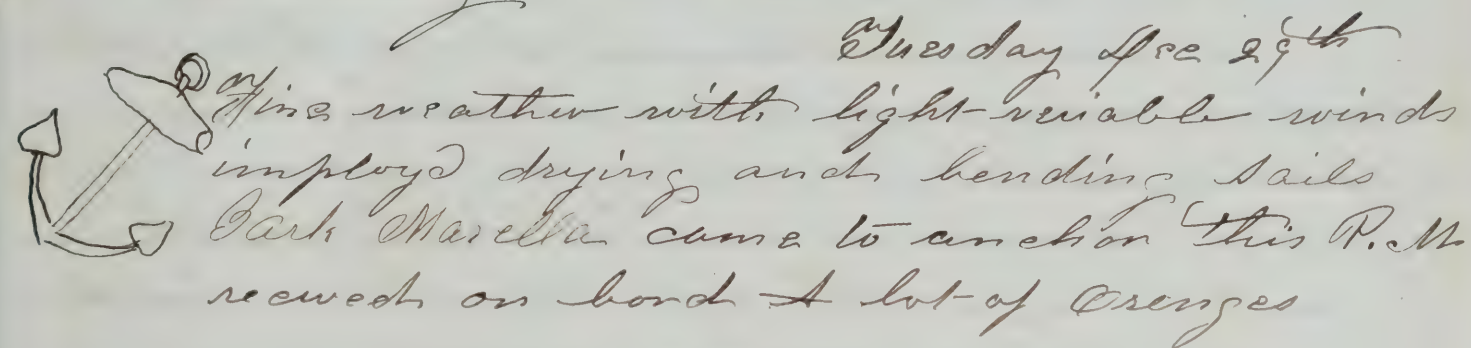 Tuesday Dec 29th
Fine weather with light variable winds
imployd drying and bending sails
Bark Marcella came to anchor this P.M.
recived on bord A lot of Orenges